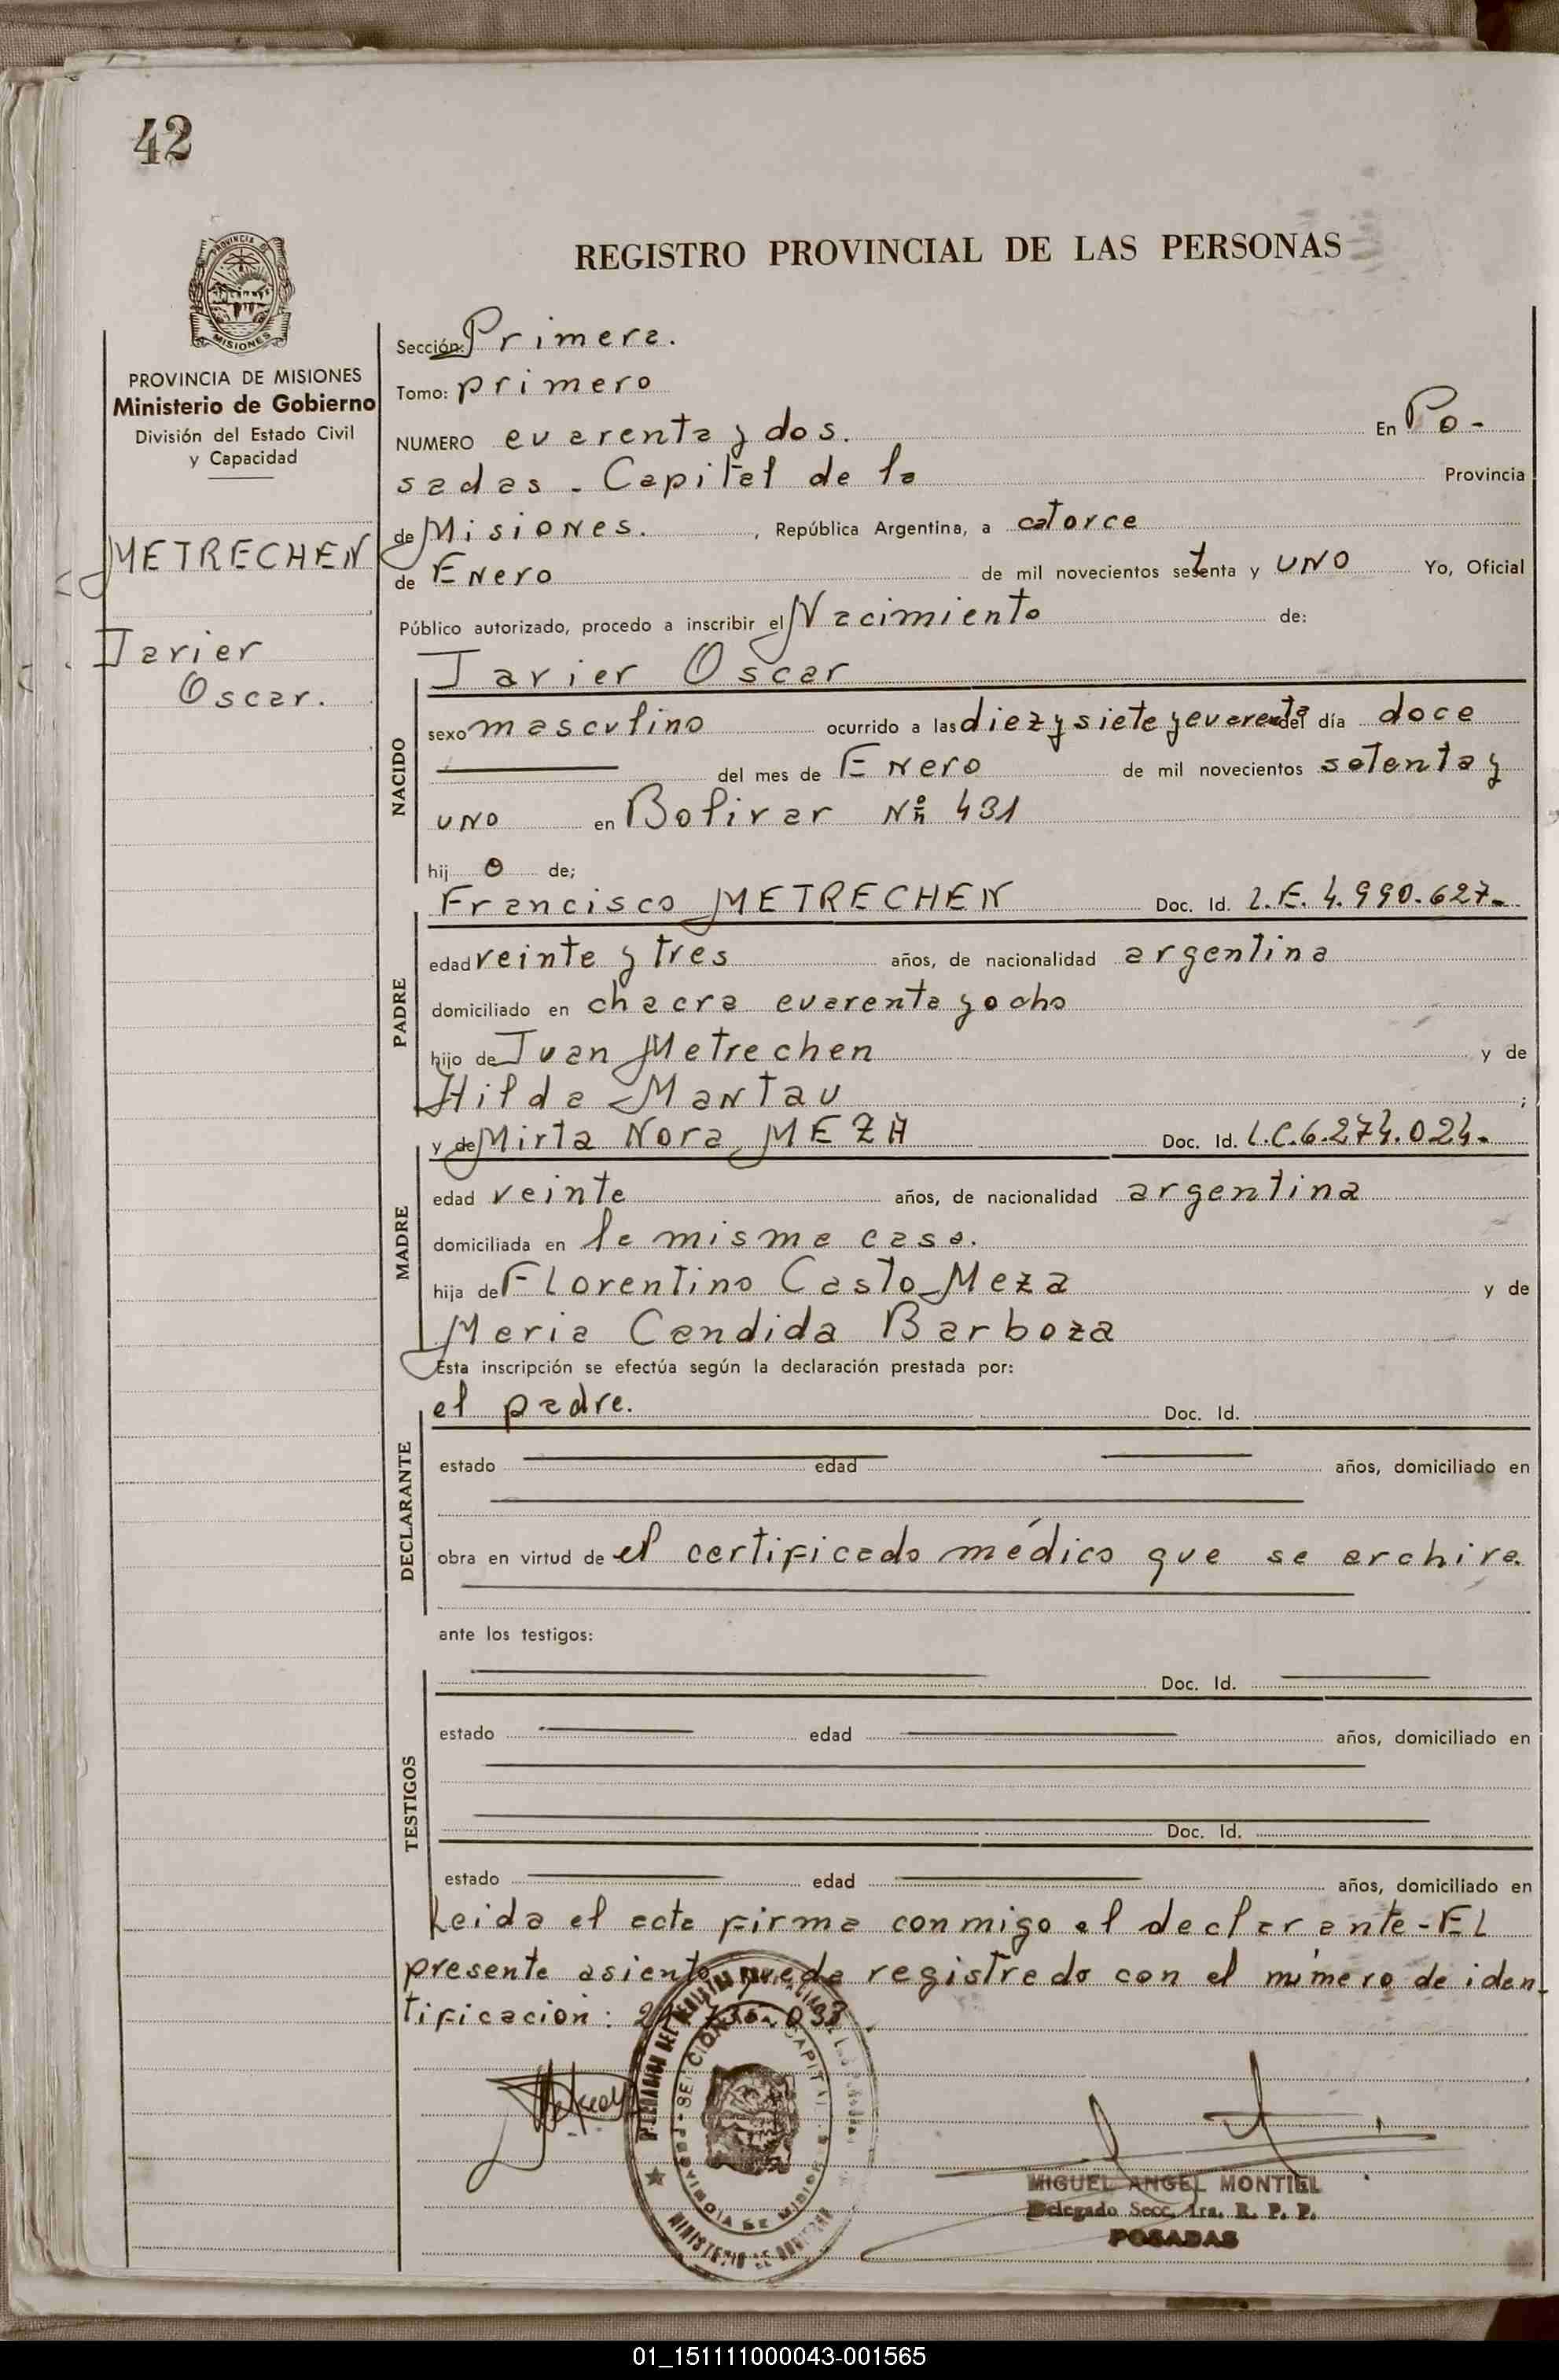 42
REGISTRO PROVINCIAL DE LAS PERSONAS
PROVINCIA DE MISIONES
Ministerio de Gobierno
División del Estado Civil
y Capacidad
METRECHEN
Javier
Oscar.
Sección: Primera.
Tomo: primero
NUMERO cuarenta y dos. En Po-
sadas - Capital de la Provincia
de Misiones. , República Argentina, a catorce
de Enero de mil novecientos setenta y UNO Yo, Oficial
Público autorizado, procedo a inscribir el Nacimiento de:
Javier Oscar
NACIDO
sexo masculino ocurrido a las diez y siete y cuarenta del día doce
del mes de Enero de mil novecientos setenta y
UNO en Bolivar Nº 431
hij o de;
Francisco METRECHEN Doc. Id. L.E. 4.990.627-
PADRE
edad veinte y tres años, de nacionalidad argentina
domiciliado en chacra cuarenta y ocho
hijo de Juan Metrechen y de
Hilda Mantau ;
y de Mirta Nora MEZA Doc. Id. L.C. 6.274.024-
MADRE
edad veinte años, de nacionalidad argentina
domiciliada en la misma casa.
hija de Florentino Casto Meza y de
Maria Candida Barboza
Esta inscripción se efectúa según la declaración prestada por:
el padre. Doc. Id.
DECLARANTE
estado edad años, domiciliado en
obra en virtud de el certificado médico que se archiva
ante los testigos:
TESTIGOS
Doc. Id.
estado edad años, domiciliado en
Doc. Id.
estado edad años, domiciliado en
Leida el acta firma conmigo el declarante - EL
presente asiento queda registrado con el número de iden-
tificación:
MIGUEL ANGEL MONTIEL
Delegado Secc. 1ra. R. P. P.
POSADAS
01_151111000043-001565